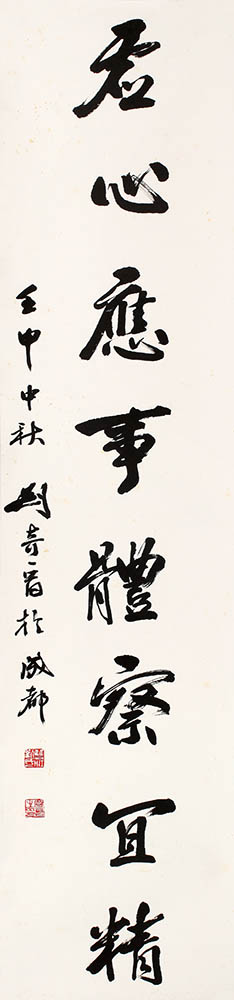 虚心應事體察宜精
壬申中秋劉奇晋於成都